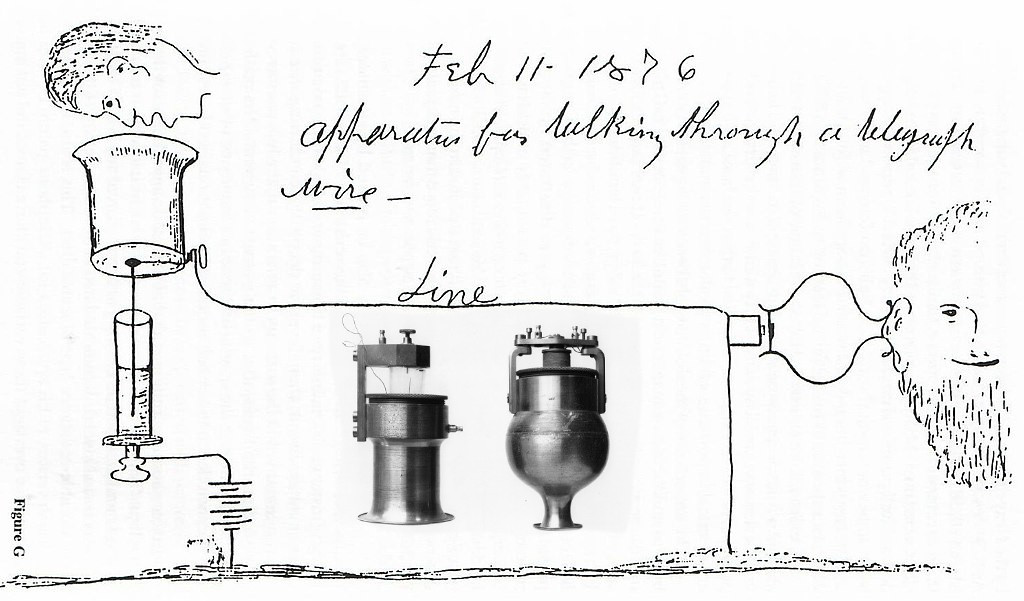 Feb 11- 1876
apparatus for talking through a telegraph
wire -
Line
Figure G